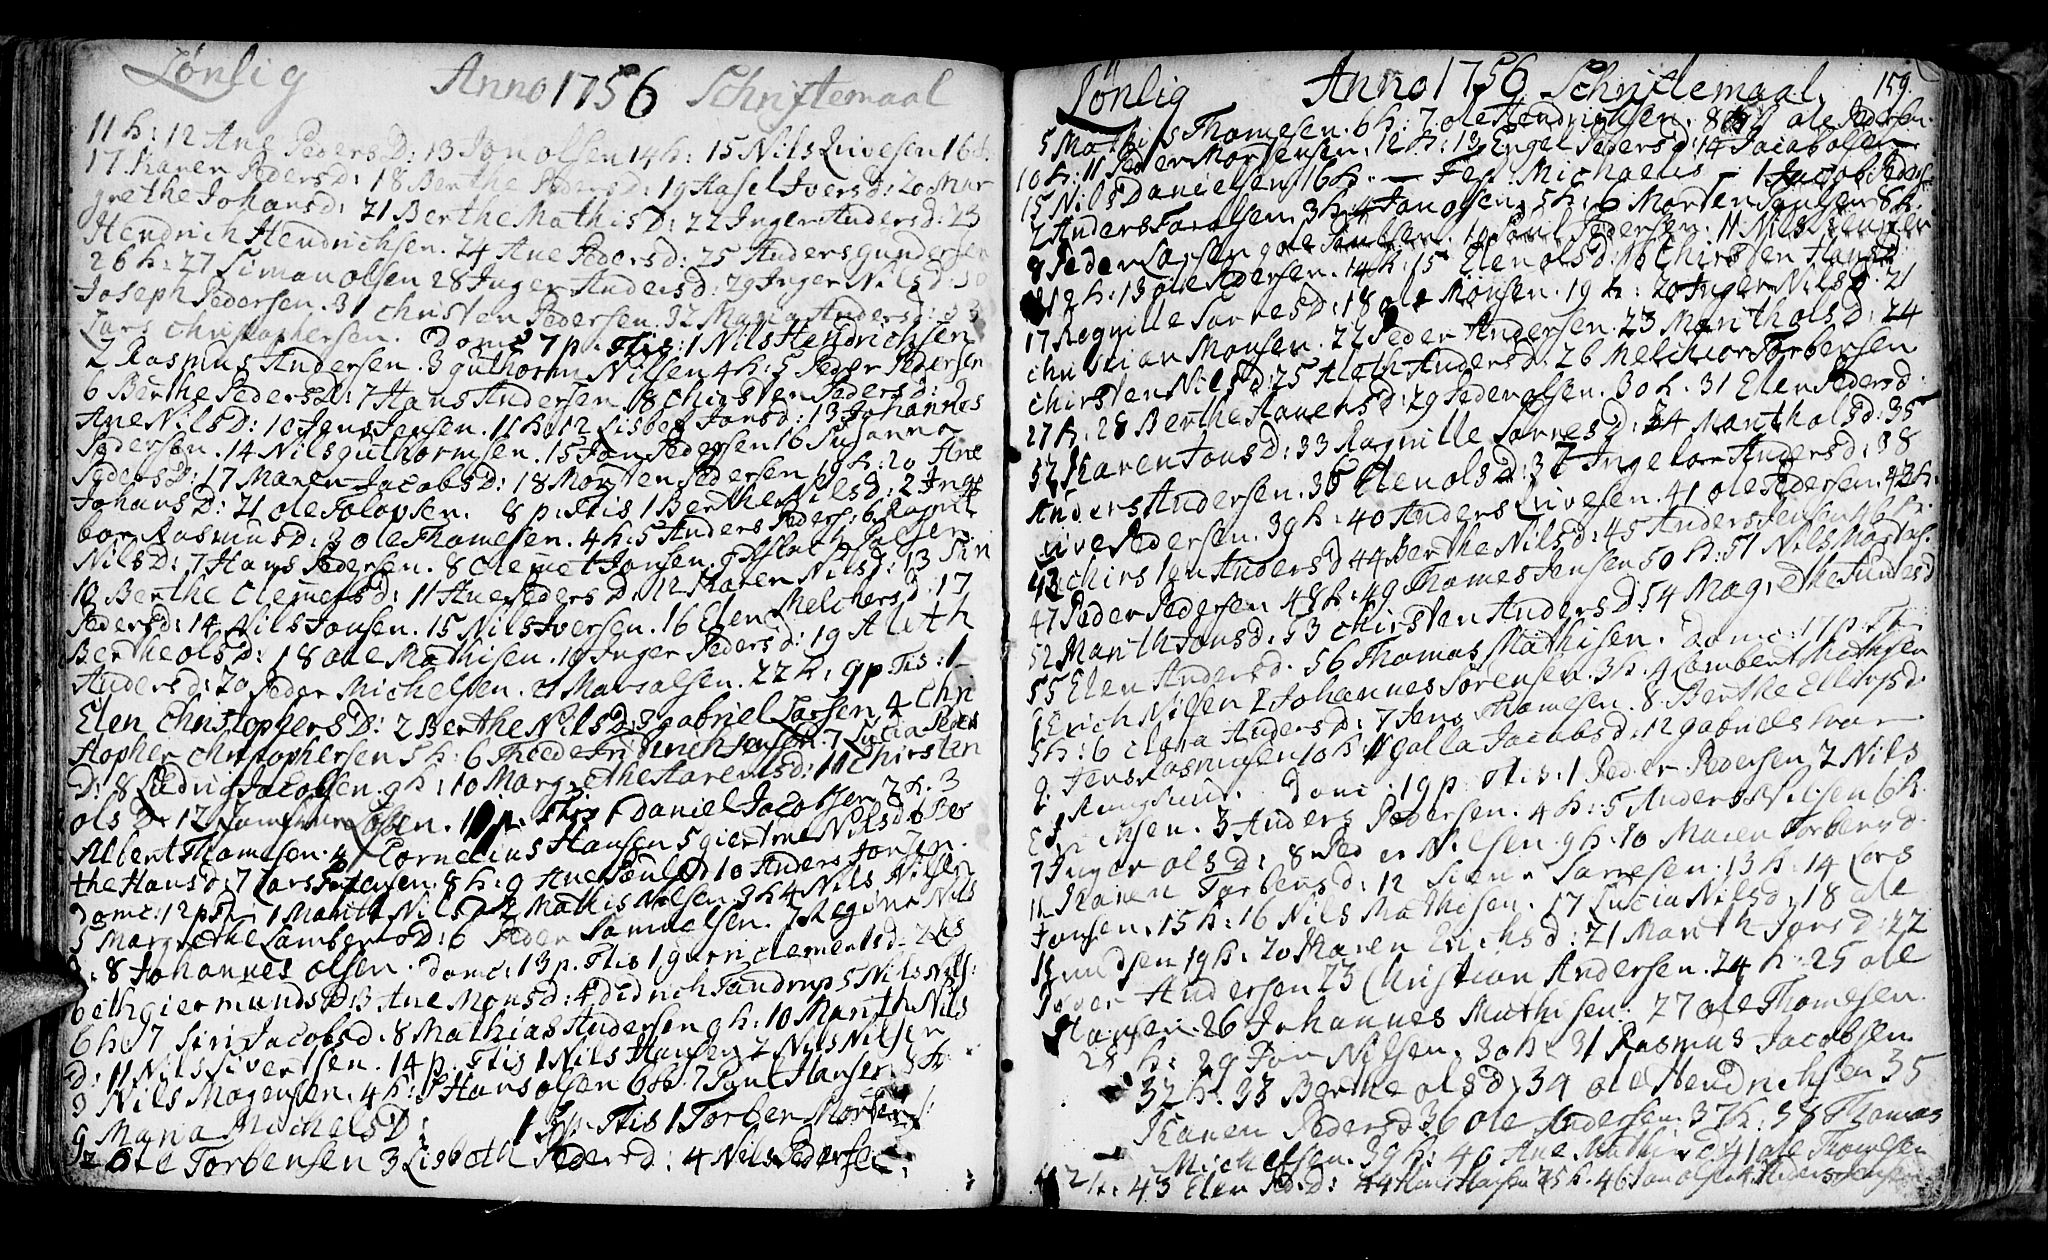 Lönlig Anno 1756 Schriftemaal
11 h: 12 Ane PedersD: 13 Jon olsen 14 h: 15 Nils Livesen 16 h.
17 Karen PedersD: 18 Berthe Pedersd: 19 Hasel Iversd: 20 Mar
grethe Johansd: 21 Berthe MathisD: 22 Inger Andersd: 23
Hendrich Hendrichsen. 24 Ane Pedersd: 25 Anders gundersen
26 h: 27 Siman olsen 28 Inger Andersd: 29 Inger Nilsd: 30
Joseph Pedersen. 31 Christen Pedersen. 32 Maria Andersd: 33
Lars Christophersen. Domc 7 p. Ttis: 1 Nils Hendrichsen
2 Rasmus Andersen. 3 guthorm Nilsen 4 h: 5 Peder Pedersen
6 Berthe Pedersd: 7 Hans Andersen. 8 Chirsten Pedersd: 9
Ane NilsD: 10 Jens Jensen. 11 h. 12 Lisbeg Jonsd: 13 Johannes
Pedersen. 14 Nils guthormsen. 15 Jon Pedersen 16 Susanna
PedersD: 17 Maren JacobsD: 18 Morten Pedersen 19 h: 20 Ane
JohansD: 21 ole Tolovsen. 8 p. Ttis 1 Berthe Nilsd: 2 Inge
bor RasmusD: 3 ole Thamesen. 4 h: 5 Anders Peders: 6 Ragnil
NilsD: 7 Hans Pedersen. 8 Clemet Jonsen. 9
10 Berthe Clemetsd: 11 Ane PedersD: 12 Karen Nilsd: 13 Siri
Pedersd: 14 Nils Jonsen. 15 Nils Iversen. 16 Elen Melchersd: 17
Berthe olsD: 18 ole Mathisen. 19 Inger Pedersd: 19 Aleth
Andersd: 20 Peder Michelsen. 21 Mars olsen. 22 h: 9 p Ttis: 1
Elen ChristophersD: 2 Berthe NilsD: 3 gabriel Larsen 4 Chri
stopher Christophersen 5 h: 6 Jensen. 7 Lucia Peders
D: 8 Ledvig Jacobsen. 9 h: 10 Margrethe Harensd: 11 Chirsten
olsD: 12 Larsen. 10 p. Ttis 1 Daniel Jacobsen 2 h. 3
Albert Thamesen. 4 Cornelius Hansen 5 giertrue Nilsd 6 Ber
the Hansd: 7 Lars Petersen. 8 h: 9 Ane PoulsD 10 Anders Jonsen.
Domc: 12 p 1 Marith NilsD 2 Mathis Nilsen 3 h 4 Nils Nilsen
5 Margrethe LambertsD: 6 Peder Samuelsen. 7 Regine Nils
D. 8 Johannes olsen. Domc: 13 p. Ttis 1 gurri Clementsd. 2 Lis
beth giermundsD: 3 Ane Monsd: 4 Didrich Tandrup 5 Nils Nils:
6 h 7 Siri Jacobsd. 8 Mathias Andersen 9 h: 10 Marith Nils
d: 11 Nils Sivertsen. 14 p. Ttis 1 Nils Hansen 2 Nils Nilsen
3 Nils Mogensen. 4 h: 5 Hans olsen 6 h. 7 Poul Hansen 8 h
9 Maria MichelsD: Ttis 1 Torben Mortens:
2 ole Torbensen 3 Lisbeth Pedersd: 4 Nils Pedersen
Lönlig Anno 1756 Schriftemaal. 159.
5 Mathis Thamesen. 6 h: 7 ole Hendrichsen. 8 h: 9 ole Peders:
10 h: 11 Peder Mortensen. 12 h: 13 Engel Pedersd: 14 Jacob olsen
15 Nils Danielsen 16 h. — Fest: Michaelis 1 Jacob Peders:
2 Anders 3 h: 4 Jon olsen. 5 h: 6 Morten Jonsen 8 h.
8 Peder Larsen 9 ole 10 Poul Pedersen. 11 Nils
12 h: 13 ole Pedersen. 14 h: 15 Elen olsd: 16 Chirsten Hansd:
17 Ragnille Sørresd: 18 ole Monsen. 19 h: 20 Inger NilsD. 21
Christian Monsen. 22 Peder Andersen. 23 Marith olsd: 24
Chirsten NilsD: 25 Aleth Andersd: 26 Melchior Torbersen
27 h: 28 Berthe Hansd: 29 Peder olsen. 30 h. 31 Elen Pedersd.
32 Karen JonsD: 33 Ragnille SørresD: 34 Marith olsd: 35
Anders Andersen. 36 Elen olsD: 37 Ingebor Andersd: 38
Live Pedersen. 39 h: 40 Anders Livesen. 41 ole Pedersen. 42 h.
43 Chirsten AndersD 44 Berthe Nilsd: 45 Anders Jensen 46 h.
47 Peder Pedersen 48 h: 49 Thames Jensen 50 h: 51 Nils Mortens:
52 Marith Jonsd: 53 Chirsten AndersD: 54 Magrethe Andersd
55 Elen Andersd. 56 Thomas Mathisen. Domc: 17 p. Tr.
1 Erich Nilsen 2 Johannes Sørensen. 3 h. 4 Lambert Mathisen
5 h: 6 Clara Andersd: 7 Jens Thamesen. 8 Berthe Ellingsd:
9 Jens Rasmusen 10 h: 11 golla Jacobsd: 12 gabriel
Domc: 19 p. Ttis: 1 Peder Pedersen. 2 Nils
Erichsen. 3 Anders Pedersen. 4 h: 5 Anders Nilsen 6 h.
7 Inger olsD: 8 Peder Nilsen. 9 h: 10 Maren Torbensd.
11 Karen Torbensd: 12 Siena Sørresen. 13 h: 14 Lars
Jonsen. 15 h: 16 Nils Mathisen. 17 Lucia NilsD: 18 ole
19 h: 20 Maren Erichsd: 21 Marith Jonsd: 22
Peder Andersen 23 Christian Andersen. 24 h: 25 ole
Hansen. 26 Johannes Mathisen. 27 ole Thomesen.
28 h: 29 Jon Nilsen. 30 h: 31 Rasmus Jacobsen.
32 h: 33 Berthe olsd: 34 ole Hendrichsen 35
Karen Pedersd: 36 ole Andersen. 37 h: 38 Thomas
Michelsen. 39 h: 40 Ane MathisD: 41 ole Thomesen
42 h: 43 Elen Ped:D: 44 Hans Hansen 45 h. 46 Jon olsen 47 Anders Jensen